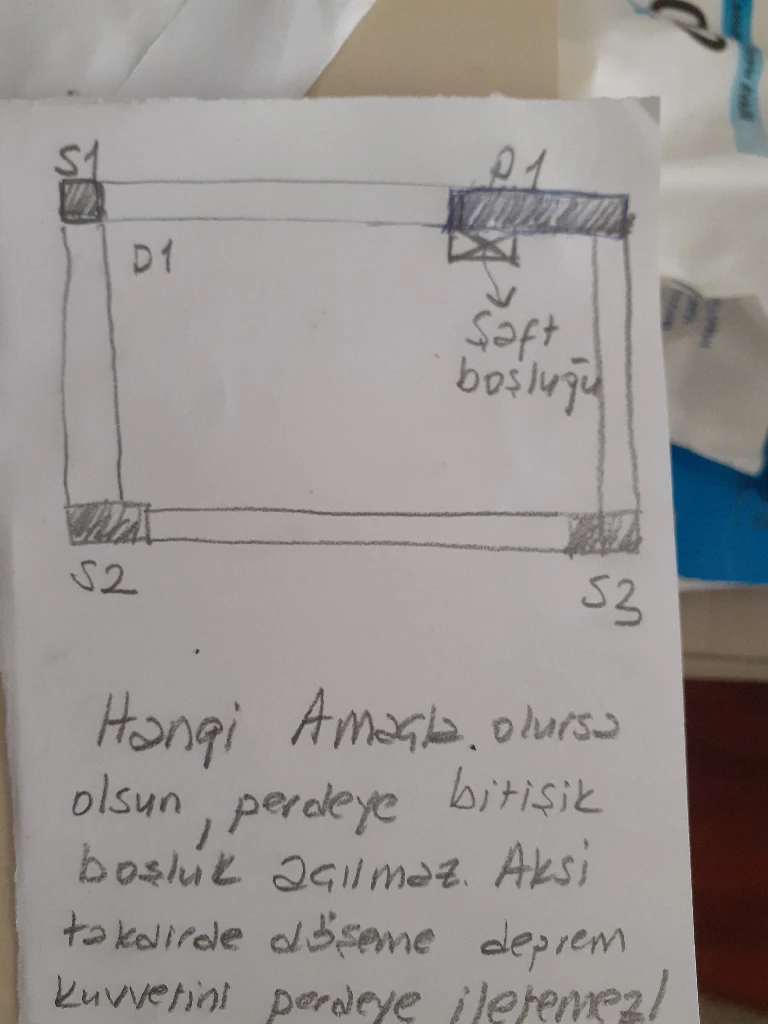 S1
P.1
D1
Şaft
boşluğu
S2
S3
Hangi Amaçla. olursa
olsun, perdeye bitişik
boşluk açılmaz. Aksi
takdirde döşeme deprem
kuvvetini perdeye iletemez!